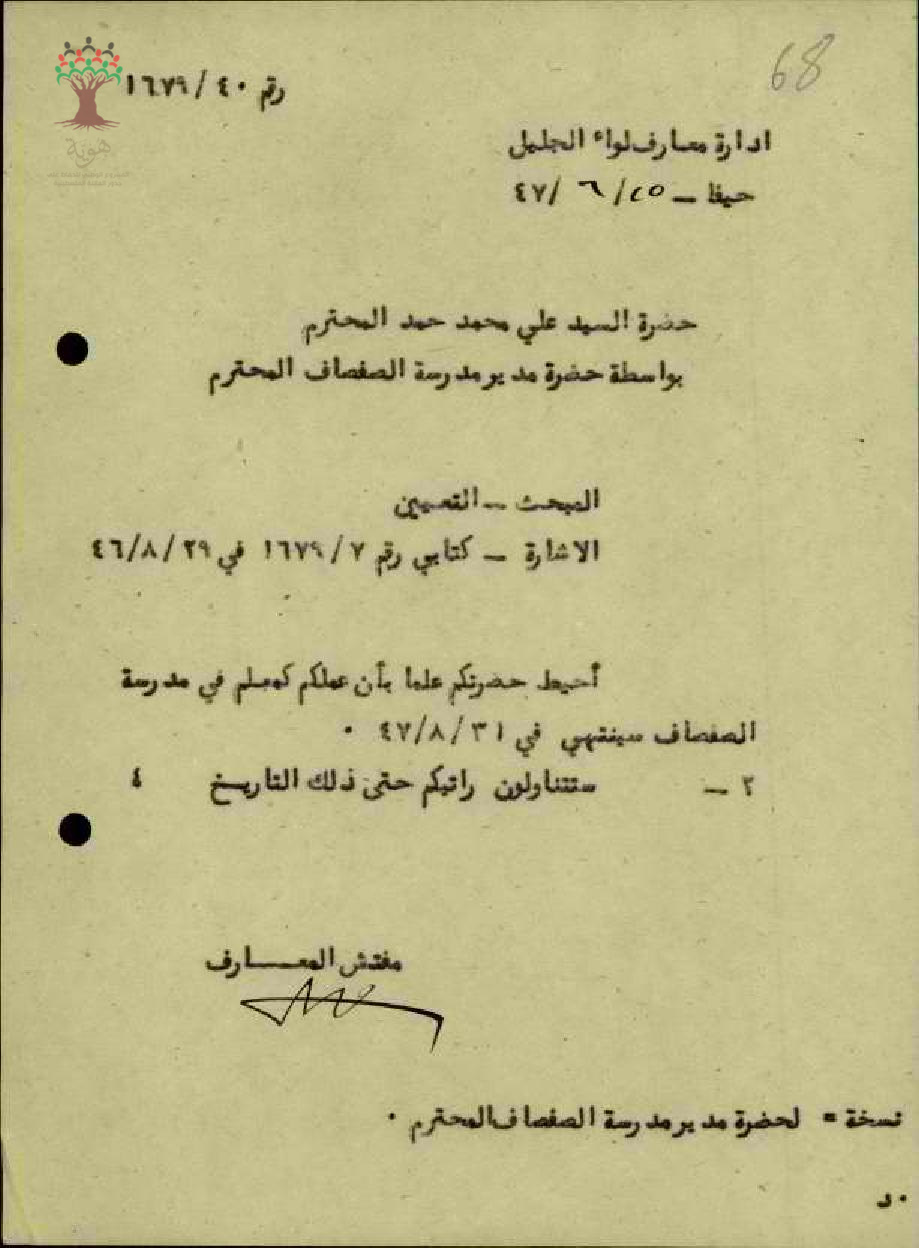 68
رقم ٤٠/١٦٧٩
ادارة معارف لواء الجليل
حيفا – ٢٥/٦/٤٧
هوية
حضرة السيد علي محمد حمد المحترم
بواسطة حضرة مدير مدرسة الصفصاف المحترم
المبحث – التعيين
الاشارة – كتابي رقم ٧/١٦٧٩ في ٢٩/٨/٤٦
أحيط حضرتكم علما بأن عملكم كمعلم في مدرسة
الصفصاف سينتهي في ٣١/٨/٤٧ ٠
٢ – ستتناولون راتبكم حتى ذلك التاريخ ٤
مفتش المعــــارف
نسخة = لحضرة مدير مدرسة الصفصاف المحترم ٠
٠ د